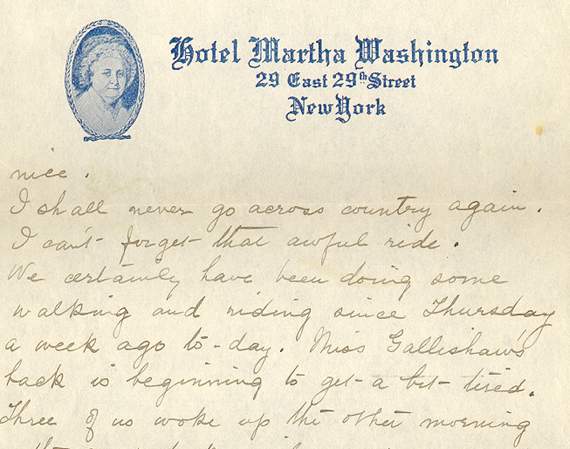 Hotel Martha Washington
29 East 29th Street
New York
nice.
I shall never go across country again.
I can't forget that awful ride.
We certainly have been doing some
walking and riding since Thursday
a week ago to-day. Miss Gallishaw's
back is beginning to get a bit tired.
Three of us woke up the other morning